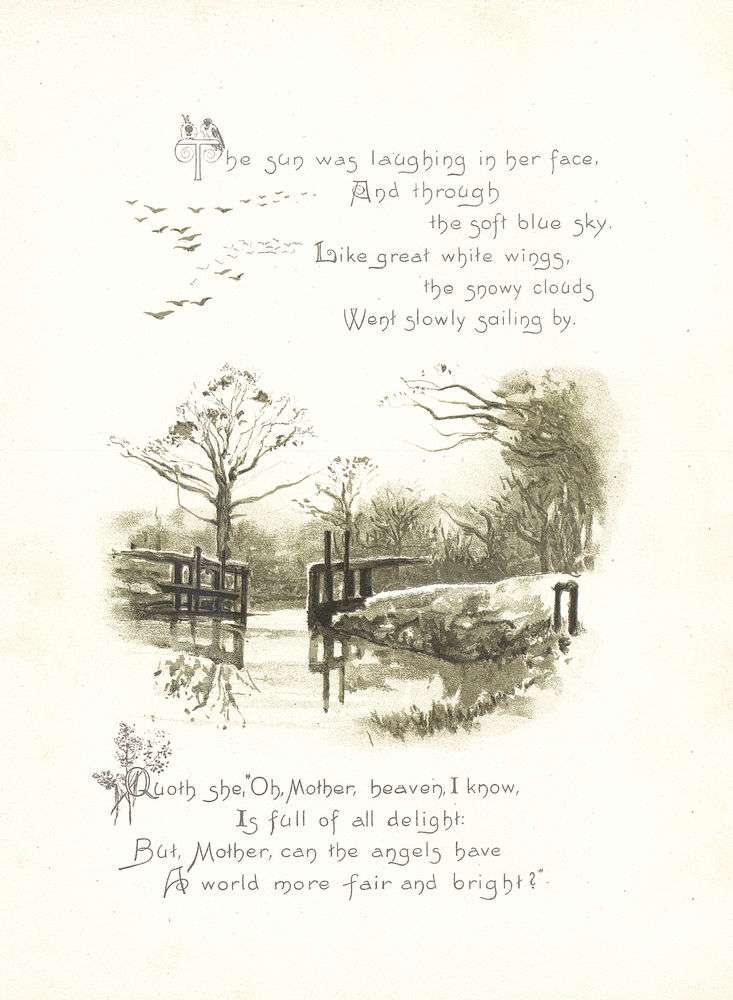 The sun was laughing in her face,
And through
the soft blue sky.
Like great white wings,
the snowy clouds
Went slowly sailing by.
Quoth she, "Oh, Mother, heaven, I know,
Is full of all delight:
But, Mother, can the angels have
A world more fair and bright?"